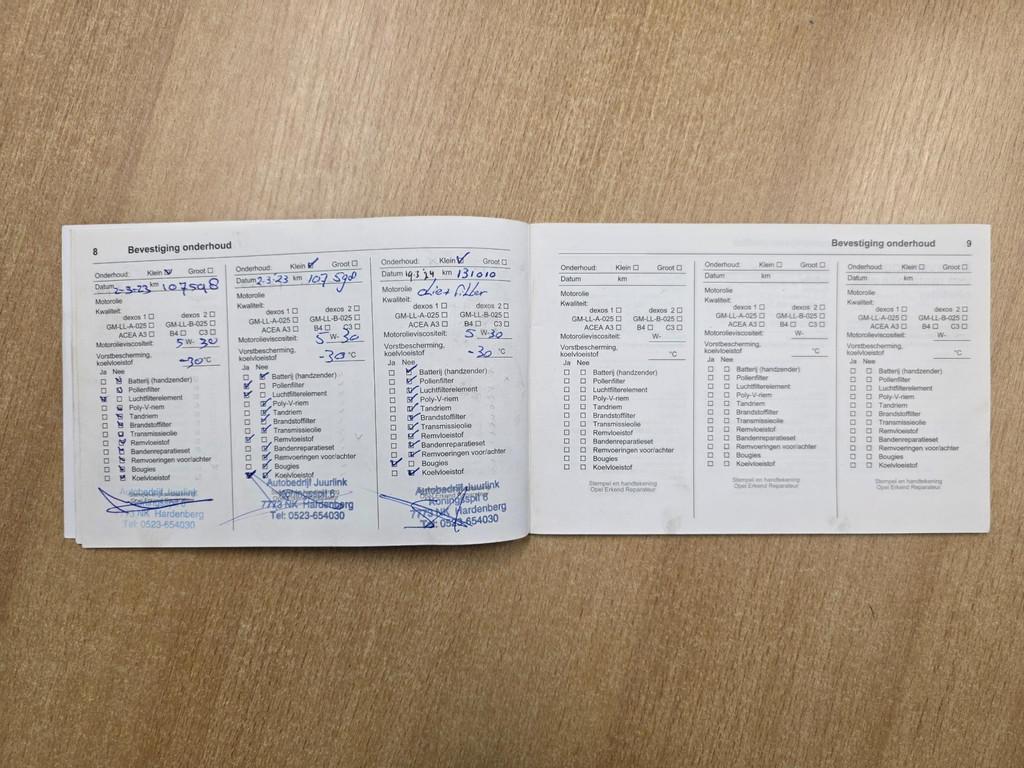 8 Bevestiging onderhoud
Onderhoud: Klein Groot
Datum 2-3-23 km 107598
Motorolie
Kwaliteit:
dexos 1 dexos 2
GM-LL-A-025 GM-LL-B-025
ACEA A3 B4 C3
Motorolieviscositeit: 5 W- 30
Vorstbescherming,
koelvloeistof -30 °C
Ja Nee
Batterij (handzender)
Pollenfilter
Luchtfilterelement
Poly-V-riem
Tandriem
Brandstoffilter
Transmissieolie
Remvloeistof
Bandenreparatieset
Remvoeringen voor/achter
Bougies
Koelvloeistof
Autobedrijf Juurlink
7773 NK Hardenberg
Tel: 0523-654030
Onderhoud: Klein Groot
Datum 2-3-23 km 107598
Motorolie
Kwaliteit:
dexos 1 dexos 2
GM-LL-A-025 GM-LL-B-025
ACEA A3 B4 C3
Motorolieviscositeit: 5 W- 30
Vorstbescherming,
koelvloeistof -30 °C
Ja Nee
Batterij (handzender)
Pollenfilter
Luchtfilterelement
Poly-V-riem
Tandriem
Brandstoffilter
Transmissieolie
Remvloeistof
Bandenreparatieset
Remvoeringen voor/achter
Bougies
Koelvloeistof
Autobedrijf Juurlink
Koningsspil 6
7773 NK Hardenberg
Tel: 0523-654030
Onderhoud: Klein Groot
Datum 19.3.'24 km 131010
Motorolie filter
Kwaliteit:
dexos 1 dexos 2
GM-LL-A-025 GM-LL-B-025
ACEA A3 B4 C3
Motorolieviscositeit: 5 W- 30
Vorstbescherming,
koelvloeistof -30 °C
Ja Nee
Batterij (handzender)
Pollenfilter
Luchtfilterelement
Poly-V-riem
Tandriem
Brandstoffilter
Transmissieolie
Remvloeistof
Bandenreparatieset
Remvoeringen voor/achter
Bougies
Koelvloeistof
Autobedrijf Juurlink
Koningsspil 6
7773 NK Hardenberg
Tel: 0523-654030
Bevestiging onderhoud 9
Onderhoud: Klein Groot
Datum km
Motorolie
Kwaliteit:
dexos 1 dexos 2
GM-LL-A-025 GM-LL-B-025
ACEA A3 B4 C3
Motorolieviscositeit: W-
Vorstbescherming,
koelvloeistof °C
Ja Nee
Batterij (handzender)
Pollenfilter
Luchtfilterelement
Poly-V-riem
Tandriem
Brandstoffilter
Transmissieolie
Remvloeistof
Bandenreparatieset
Remvoeringen voor/achter
Bougies
Koelvloeistof
Stempel en handtekening
Opel Erkend Reparateur
Onderhoud: Klein Groot
Datum km
Motorolie
Kwaliteit:
dexos 1 dexos 2
GM-LL-A-025 GM-LL-B-025
ACEA A3 B4 C3
Motorolieviscositeit: W-
Vorstbescherming,
koelvloeistof °C
Ja Nee
Batterij (handzender)
Pollenfilter
Luchtfilterelement
Poly-V-riem
Tandriem
Brandstoffilter
Transmissieolie
Remvloeistof
Bandenreparatieset
Remvoeringen voor/achter
Bougies
Koelvloeistof
Stempel en handtekening
Opel Erkend Reparateur
Onderhoud: Klein Groot
Datum km
Motorolie
Kwaliteit:
dexos 1 dexos 2
GM-LL-A-025 GM-LL-B-025
ACEA A3 B4 C3
Motorolieviscositeit: W-
Vorstbescherming,
koelvloeistof °C
Ja Nee
Batterij (handzender)
Pollenfilter
Luchtfilterelement
Poly-V-riem
Tandriem
Brandstoffilter
Transmissieolie
Remvloeistof
Bandenreparatieset
Remvoeringen voor/achter
Bougies
Koelvloeistof
Stempel en handtekening
Opel Erkend Reparateur